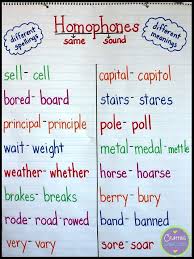 Homophones
different spellings
same sound
different meanings
sell - cell
bored - board
principal - principle
wait - weight
weather - whether
brakes - breaks
rode - road - rowed
very - vary
capital - capitol
stairs - stares
pole - poll
metal - medal - mettle
horse - hoarse
berry - bury
band - banned
sore - soar